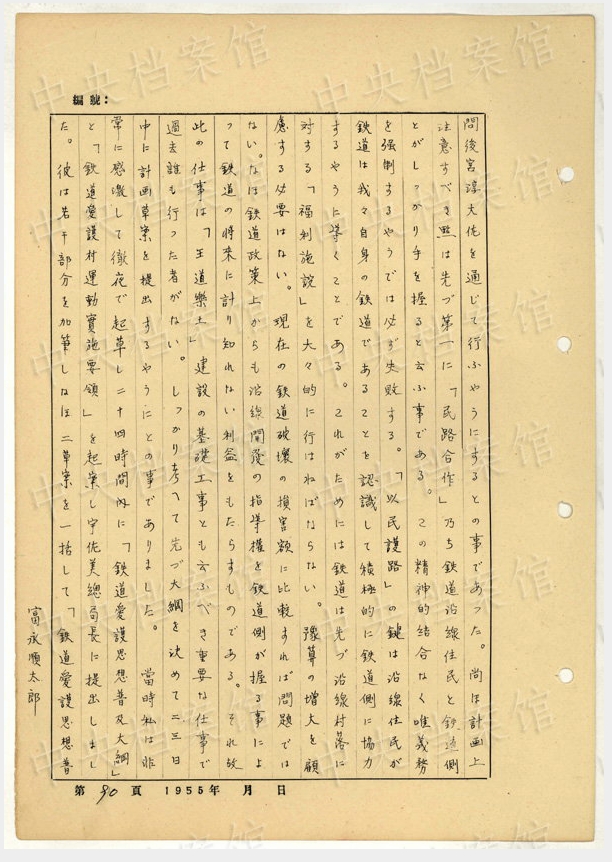 編號：
問後宮淳大佐を通じて行ふやうにするとの事であった。尚ほ計画上
注意すべき點は先づ第一に「民路合作」乃ち鉄道沿線住民と鉄道側
とがしっかり手を握ると云ふ事である。この精神的結合なく唯義務
を強制するやうでは必ず失敗する。「以民護路」の鍵は沿線住民が
鉄道は我々自身の鉄道であることを認識して積極的に鉄道側に協力
するやうに導くことである。これがためには鉄道は先づ沿線村落に
対する「福利施設」を大々的に行はねばならない。豫算の増大を顧
慮する必要はない。現在の鉄道破壊の損害額に比較すれば問題では
ない。なほ鉄道政策上からも沿線開發の指導權を鉄道側が握る事によ
って鉄道の将来に計り知れない利益をもたらすものである。それ故
此の仕事は「王道樂土」建設の基礎工事とも云ふべき重要な仕事で
過去誰も行った者がない。しっかり考へて先づ大綱を決めて二三日
中に計画草案を提出するやうにとの事でありました。當時私は非
常に感激して徹夜で起草し二十四時間內に「鉄道愛護思想普及大綱」
と「鉄道愛護村運動實施要領」を起案し宇佐美總局長に提出しまし
た。彼は若干部分を加筆しなほ二草案を一括して「鉄道愛護思想普
富永順太郎
第 90 頁 1955年 月 日
中央档案馆